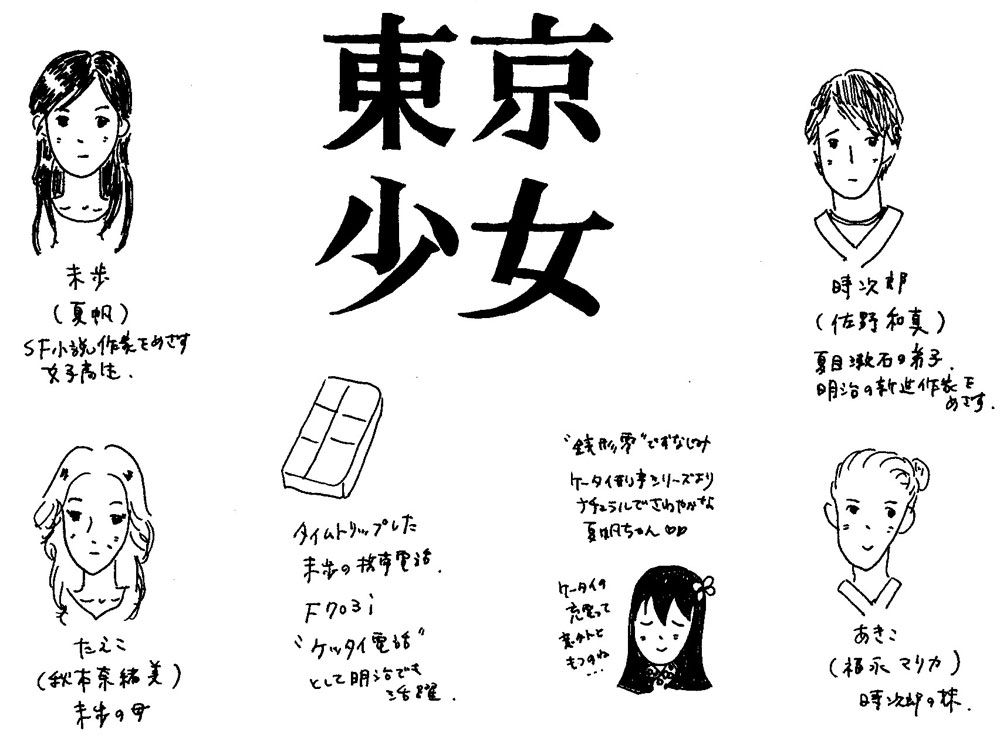 東京
少女
未歩
(夏帆)
SF小説作家をめざす
女子高生.
時次郎
(佐野和真)
夏目漱石の弟子.
明治の新進作家を
めざす.
たえこ
(秋本奈緒美)
未歩の母
タイムトリップした
未歩の携帯電話.
F703i
"ケッタイ電話"
として明治でも
活躍.
"銭形零"でおなじみ
ケータイ刑事シリーズより
ナチュラルでさわやかな
夏帆ちゃん♡♡
ケータイの
充電って
意外と
もつのね
...
あきこ
(福永マリカ)
時次郎の妹.